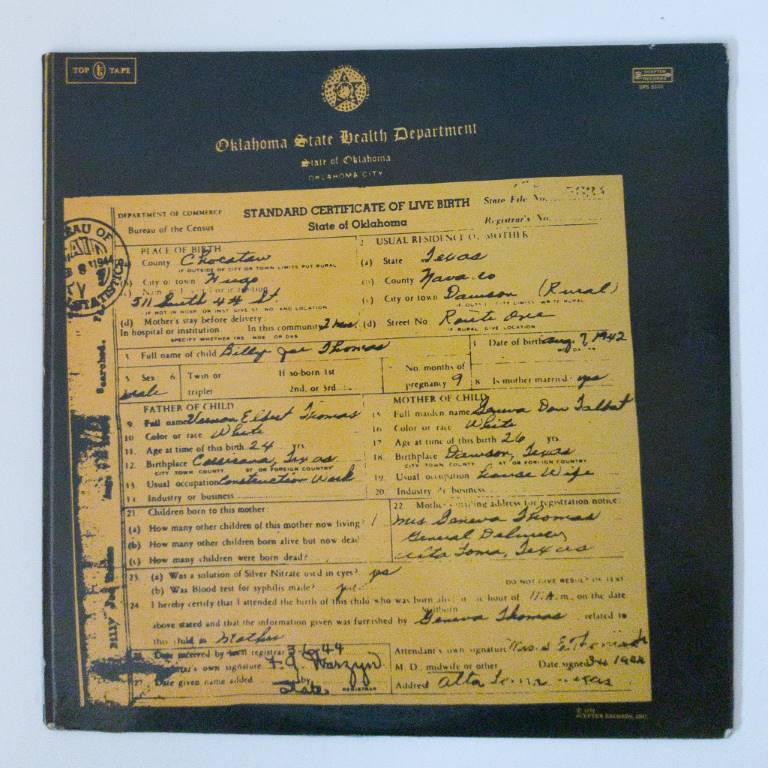 TOP t TAPE
SCEPTER RECORDS
Oklahoma State Health Department
State of Oklahoma
OKLAHOMA CITY
DEPARTMENT OF COMMERCE
Bureau of the Census
STANDARD CERTIFICATE OF LIVE BIRTH
State of Oklahoma
State File No.
Registrar's No.
PLACE OF BIRTH
County Choctaw
IF OUTSIDE OF CITY OR TOWN LIMITS PUT RURAL
City or town Hugo
511 South 4th St
(d) Mother's stay before delivery
In hospital or institution In this community 2 mos.
SPECIFY WHETHER YRS. MOS. OR DAS
2 USUAL RESIDENCE OF MOTHER
(a) State Texas
County Navarro
(c) City or town Dawson (Rural)
(d) Street No Route One
IF RURAL GIVE LOCATION
3. Full name of child Billy Joe Thomas
4 Date of birth Aug 7, 1942
5 Sex 6 Twin or If so-born 1st
male triplet 2nd. or 3rd
No. months of
pregnancy 9
8 Is mother married yes
FATHER OF CHILD
9. Full name Vernon Elbert Thomas
10 Color or race White
11. Age at time of this birth 24 yrs.
12. Birthplace Corsicana, Texas
CITY TOWN COUNTY ST OR FOREIGN COUNTRY
13. Usual occupation Construction Work
14. Industry or business
MOTHER OF CHILD
15 Full maiden name Geneva Don Talbot
16 Color or race White
17 Age at time of this birth 26 yrs.
18. Birthplace Dawson, Texas
CITY TOWN COUNTY ST OR FOREIGN COUNTRY
19. Usual occupation House Wife
20. Industry or business
21 Children born to this mother
(a) How many other children of this mother now living? 1
(b) How many other children born alive but now dead
(c) How many children were born dead?
22 Mother mailing address for registration notice:
Mrs Geneva Thomas
General Delivery
Alta Loma, Texas
23. (a) Was a solution of Silver Nitrate used in eyes? yes
(b) Was Blood test for syphilis made? yes
DO NOT GIVE RESULT OF TEST
24 I hereby certify that I attended the birth of this child who was born alive at hour of 11 A.m. on the date
above stated and that the information given was furnished by Geneva Thomas related to
this child as Mother
Date received by local registrar 3-6-44
own signature
27. Date given name added by State REGISTRAR
Attendant's own signature
M. D. midwife or other Date signed
Address Alta Loma Texas
BUREAU OF
STATISTICS
Searched.
Billy Joe Thomas
SCEPTER RECORDS, INC.